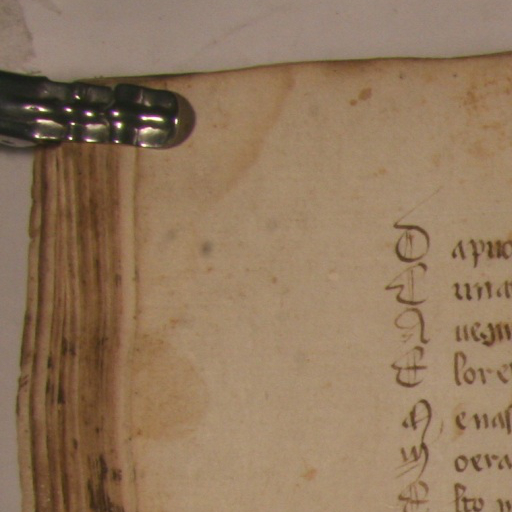 D apuo
E una
A uegn
E lore
M enas
M oera
E sto